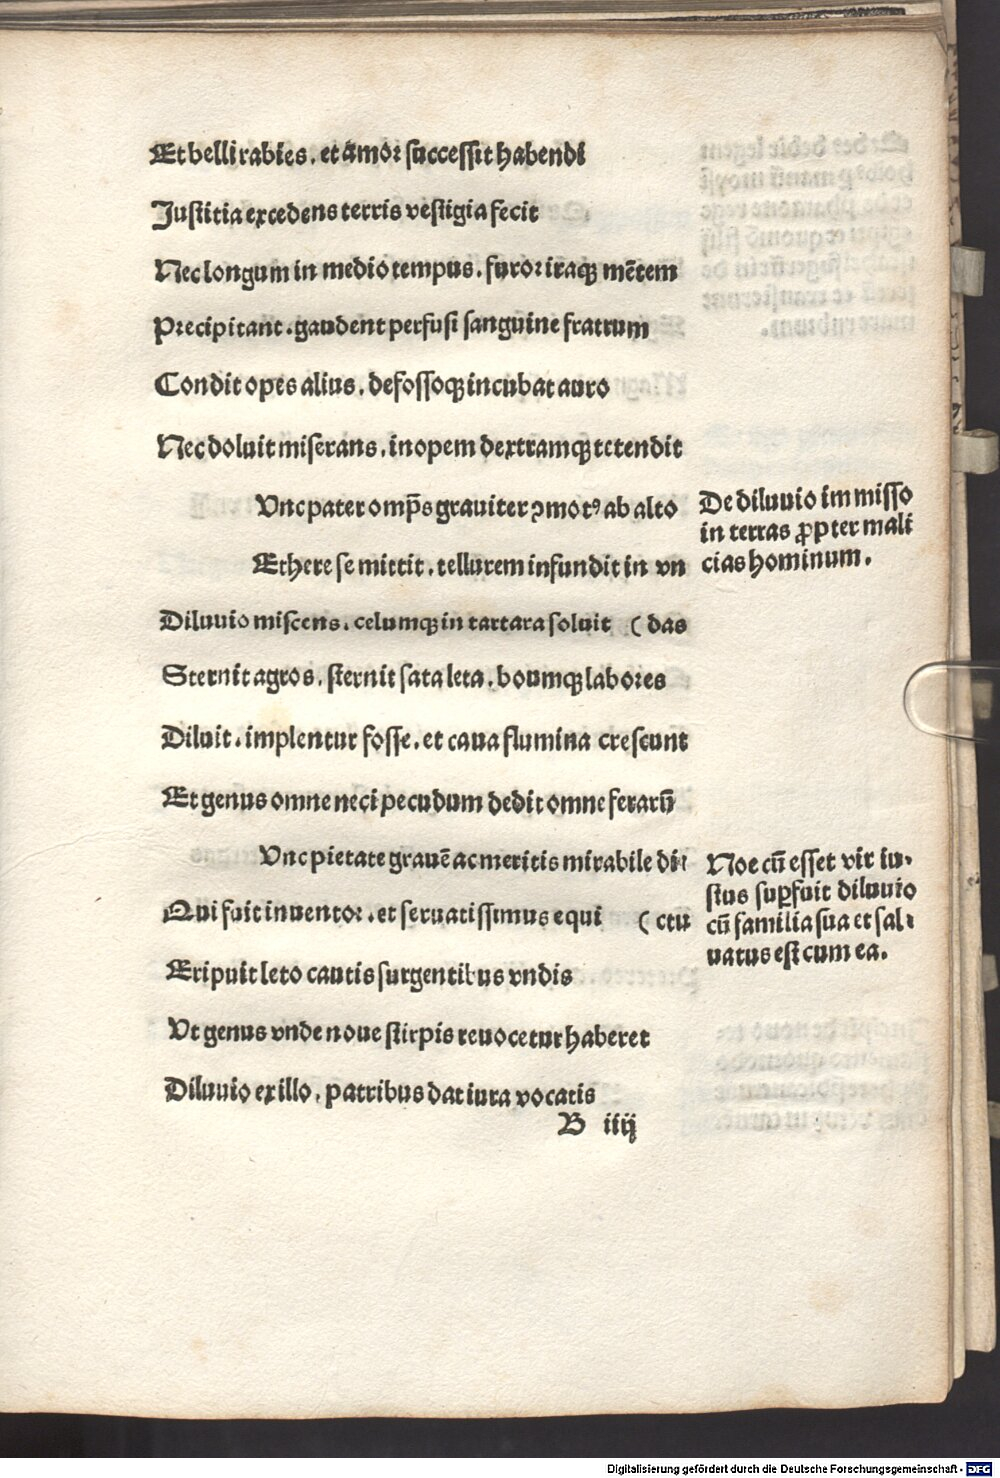 Et belli rabies. et amor successit habendi
Justitia excedens terris vestigia fecit
Nec longum in medio tempus. furor iraqꝫ mētem
Precipitant. gaudent perfusi sanguine fratrum
Condit opes alius. defossoqꝫ incubat auro
Nec doluit miserans. inopem dextramqꝫ tetendit
Vnc pater omp̄s grauiter ꝯmotꝰ ab alto
Ethere se mittit. tellurem infundit in vn
Diluuio miscens. celumqꝫ in tartara soluit (das
Sternit agros. sternit sata leta. boumqꝫ labores
Diluit. implentur fosse. et caua flumina crescunt
Et genus omne neci pecudum dedit omne ferarū
Vnc pietate grauē ac meritis mirabile di⸗
Qui fuit inuentor. et seruatissimus equi (ctu
Eripuit leto cautis surgentibus vndis
Vt genus vnde noue stirpis reuocetur haberet
Diluuio ex illo. patribus dat iura vocatis
B iiij
De diluuio immisso
in terras ꝓpter mali
cias hominum.
Noe cū esset vir iu⸗
stus suꝑfuit diluuio
cū familia sua et sal⸗
uatus est cum ea.
Digitalisierung gefördert durch die Deutsche Forschungsgemeinschaft - DFG